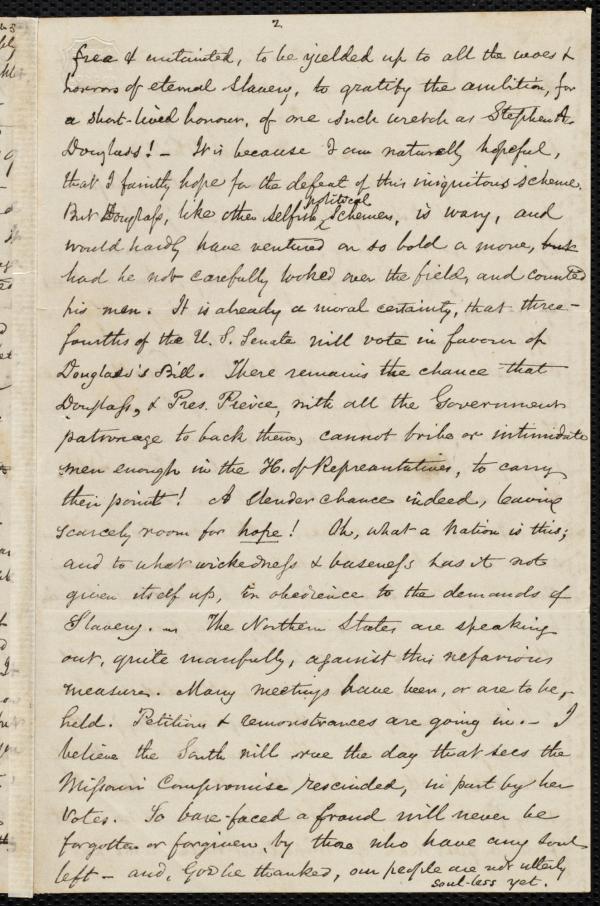 2
free & untainted, to be yielded up to all the woes &
horrors of eternal Slavery, to gratify the ambition, for
a short-lived honour, of one such wretch as Stephen A.
Douglass! – It is because I am naturally hopeful,
that I faintly hope for the defeat of this iniquitous scheme.
But Douglass, like other selfish political schemers, is wary, and
would hardly have ventured on so bold a move, but
had he not carefully looked over the field, and counted
his men. It is already a moral certainty, that three-
fourths of the U. S. Senate will vote in favour of
Douglass's Bill. There remains the chance that
Douglass, & Pres. Pierce, with all the Government
patronage to back them, cannot bribe or intimidate
men enough in the H. of Representatives, to carry
their point! A slender chance indeed, leaving
scarcely room for hope! Oh, what a Nation is this;
and to what wickedness & baseness has it not
given itself up, in obedience to the demands of
Slavery. – The Northern States are speaking
out, quite manfully, against this nefarious
measure. Many meetings have been, or are to be,
held. Petitions & remonstrances are going in. – I
believe the South will rue the day that sees the
Missouri Compromise rescinded, in part by her
votes. So bare-faced a fraud will never be
forgotten or forgiven, by those who have any soul
left – and, God be thanked, our people are not utterly
soul-less yet.